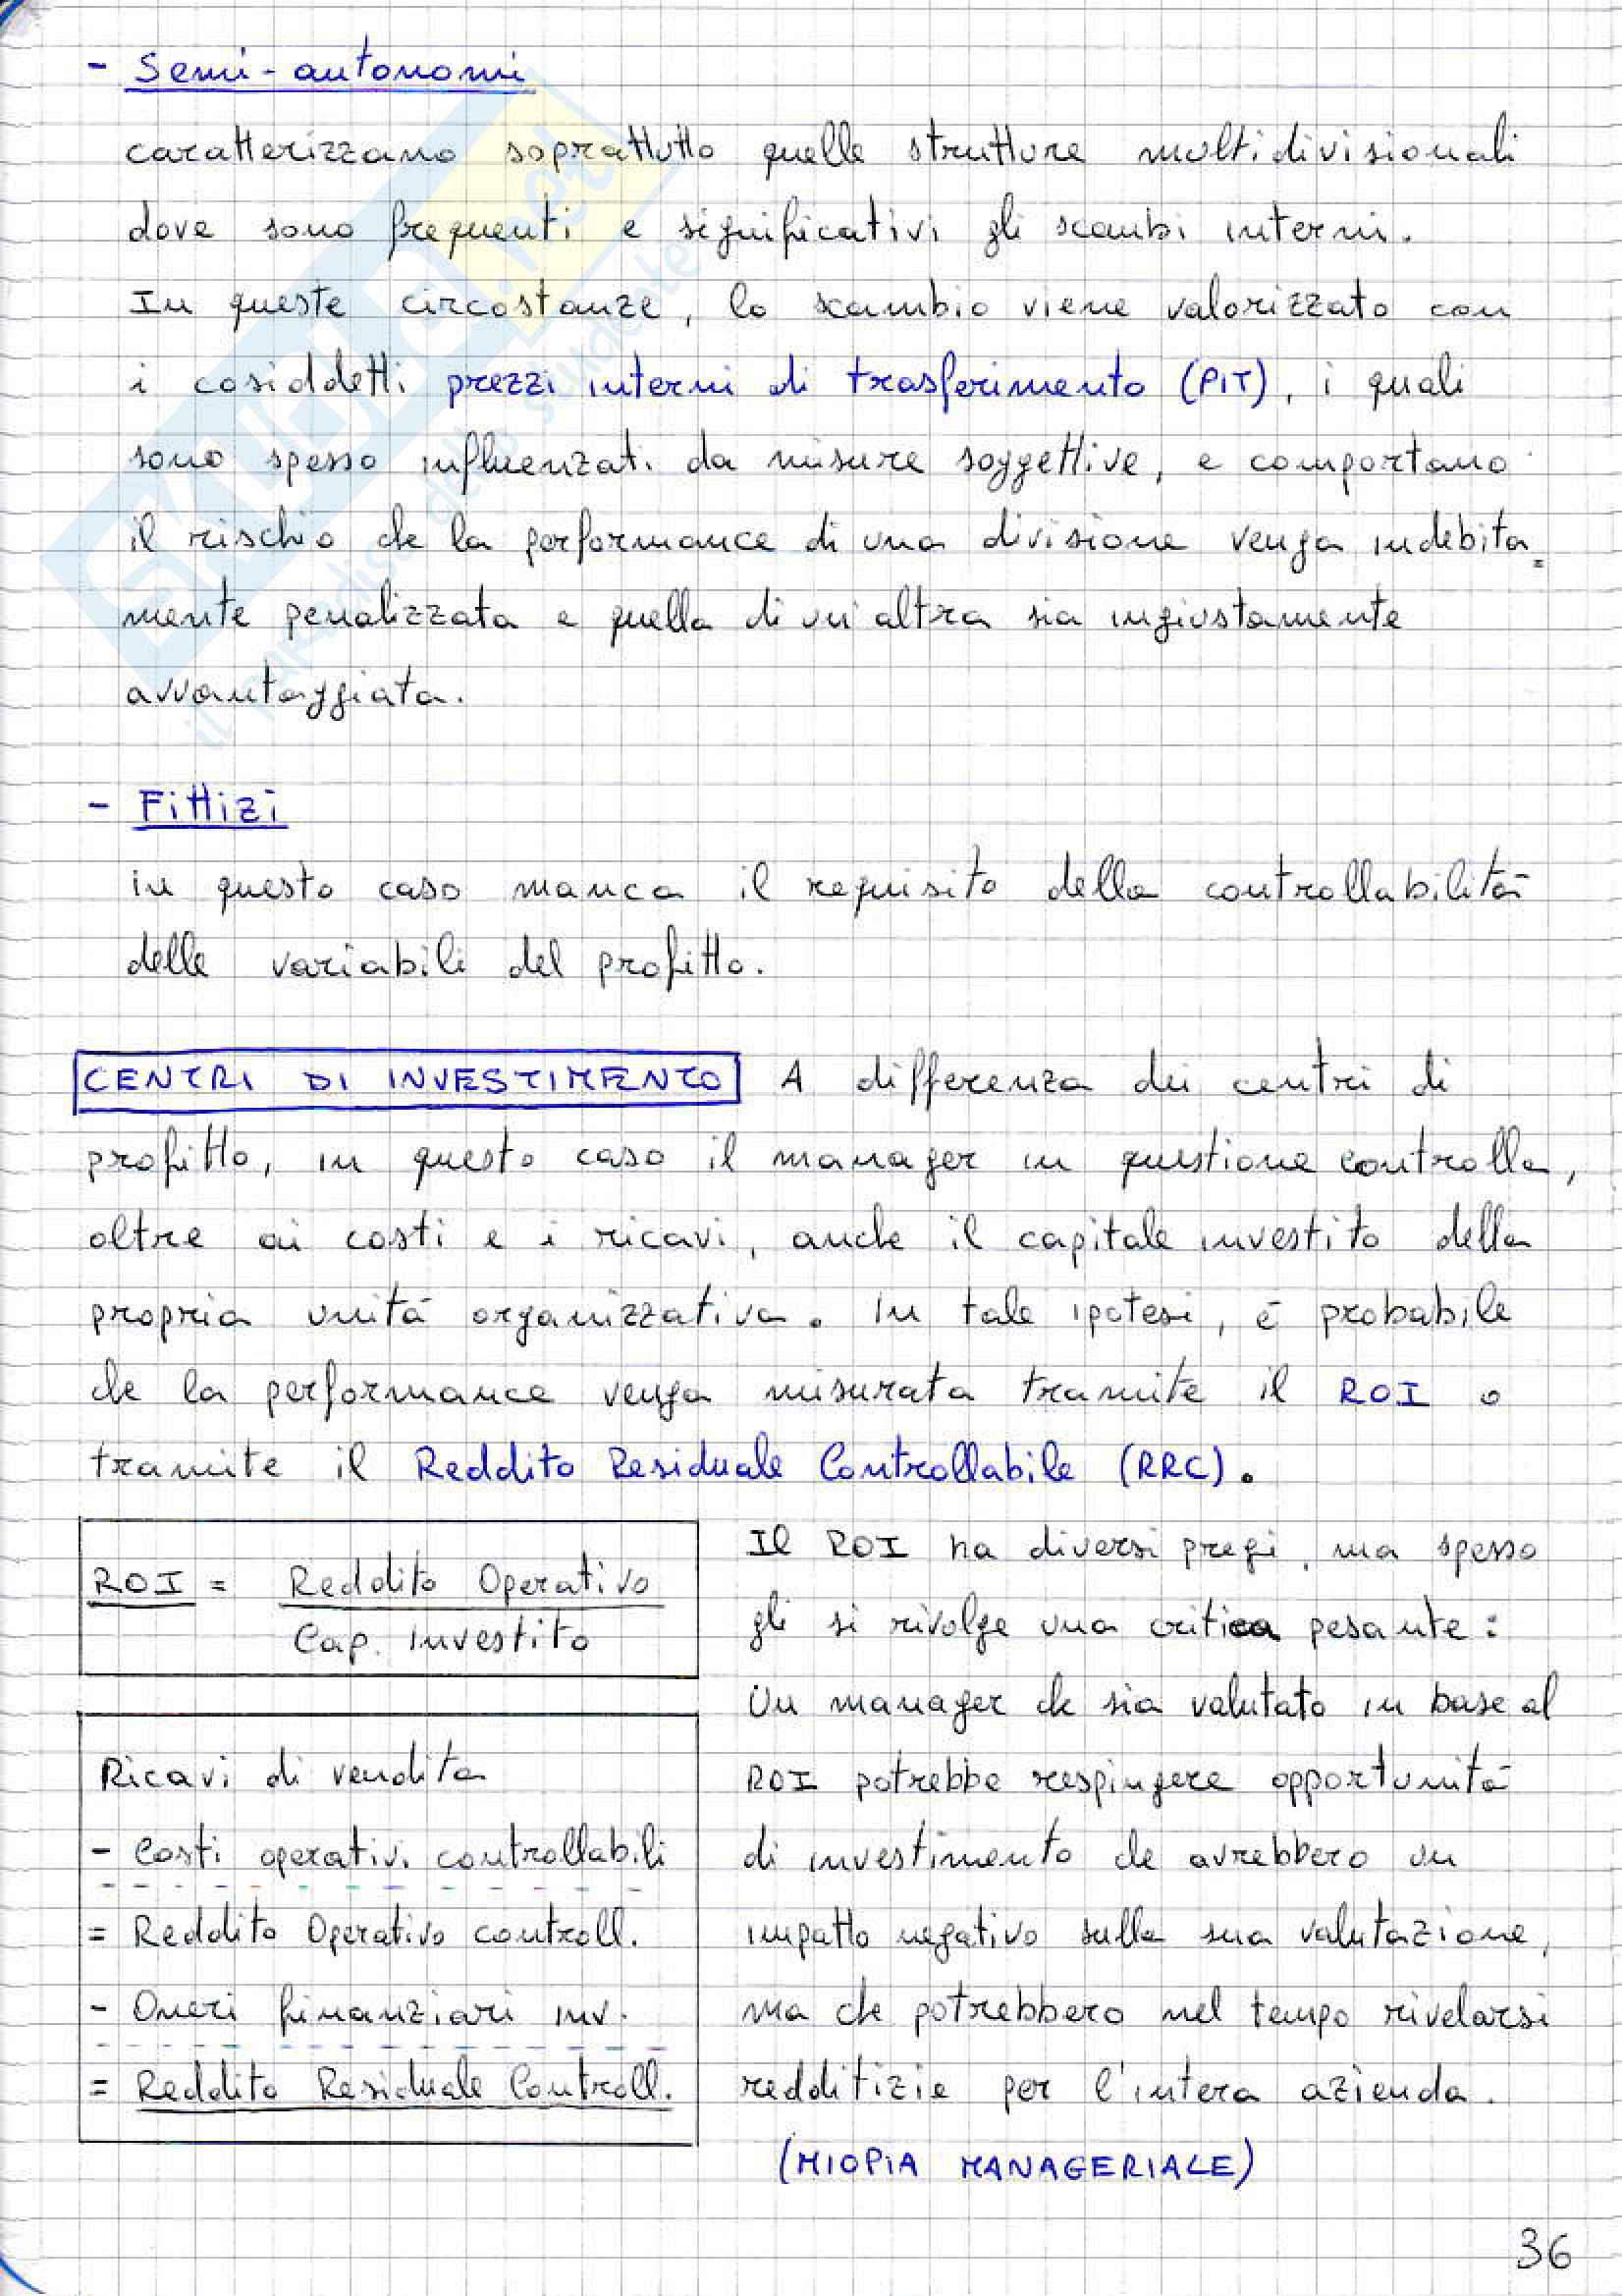 - Semi-autonomi
caratterizzano soprattutto quelle strutture multidivisionali
dove sono frequenti e significativi gli scambi interni.
In queste circostanze, lo scambio viene valorizzato con
i cosiddetti prezzi interni di trasferimento (PIT), i quali
sono spesso influenzati da misure soggettive, e comportano
il rischio che la performance di una divisione venga indebita=
mente penalizzata e quella di un'altra sia ingiustamente
avvantaggiata.
- Fittizi
in questo caso manca il requisito della controllabilità
delle variabili del profitto.
CENTRI DI INVESTIMENTO A differenza dei centri di
profitto, in questo caso il manager in questione controlla,
oltre ai costi e i ricavi, anche il capitale investito della
propria unità organizzativa. In tale ipotesi, è probabile
che la performance venga misurata tramite il ROI o
tramite il Reddito Residuale Controllabile (RRC).
ROI = Reddito Operativo
Cap. Investito
Ricavi di vendita
- Costi operativi controllabili
= Reddito Operativo controll.
- Oneri finanziari inv.
= Reddito Residuale Controll.
Il ROI ha diversi pregi, ma spesso
gli si rivolge una critica pesante:
Un manager che sia valutato in base al
ROI potrebbe respingere opportunità
di investimento che avrebbero un
impatto negativo sulla sua valutazione,
ma che potrebbero nel tempo rivelarsi
redditizie per l'intera azienda.
(MIOPIA MANAGERIALE)
36